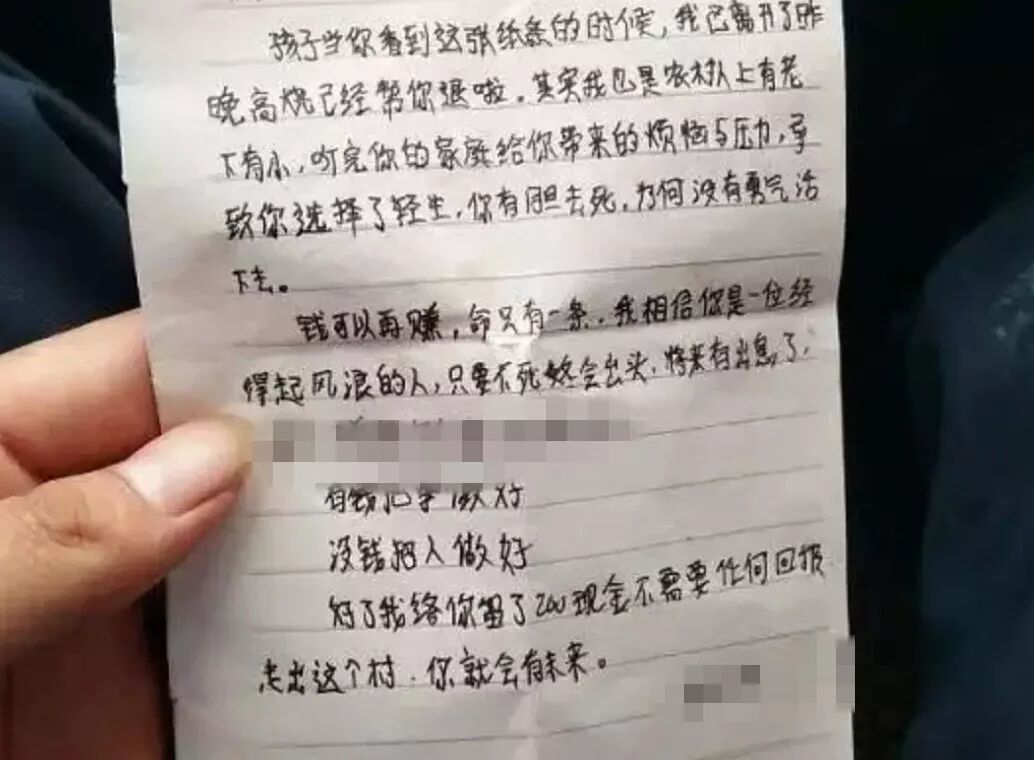 孩子当你看到这张纸条的时候，我已离开了昨
晚高烧已经帮你退啦。其实我也是农村人上有老
下有小，听完你的家庭给你带来的烦恼与压力，导
致你选择了轻生，你有胆去死，为何没有勇气活
下去。
钱可以再赚，命只有一条。我相信你是一位经
得起风浪的人，只要不死终会出头，将来有出息了，
有钱把事做好
没钱把人做好
对了我给你留了200现金不需要任何回报
走出这个村，你就会有未来。